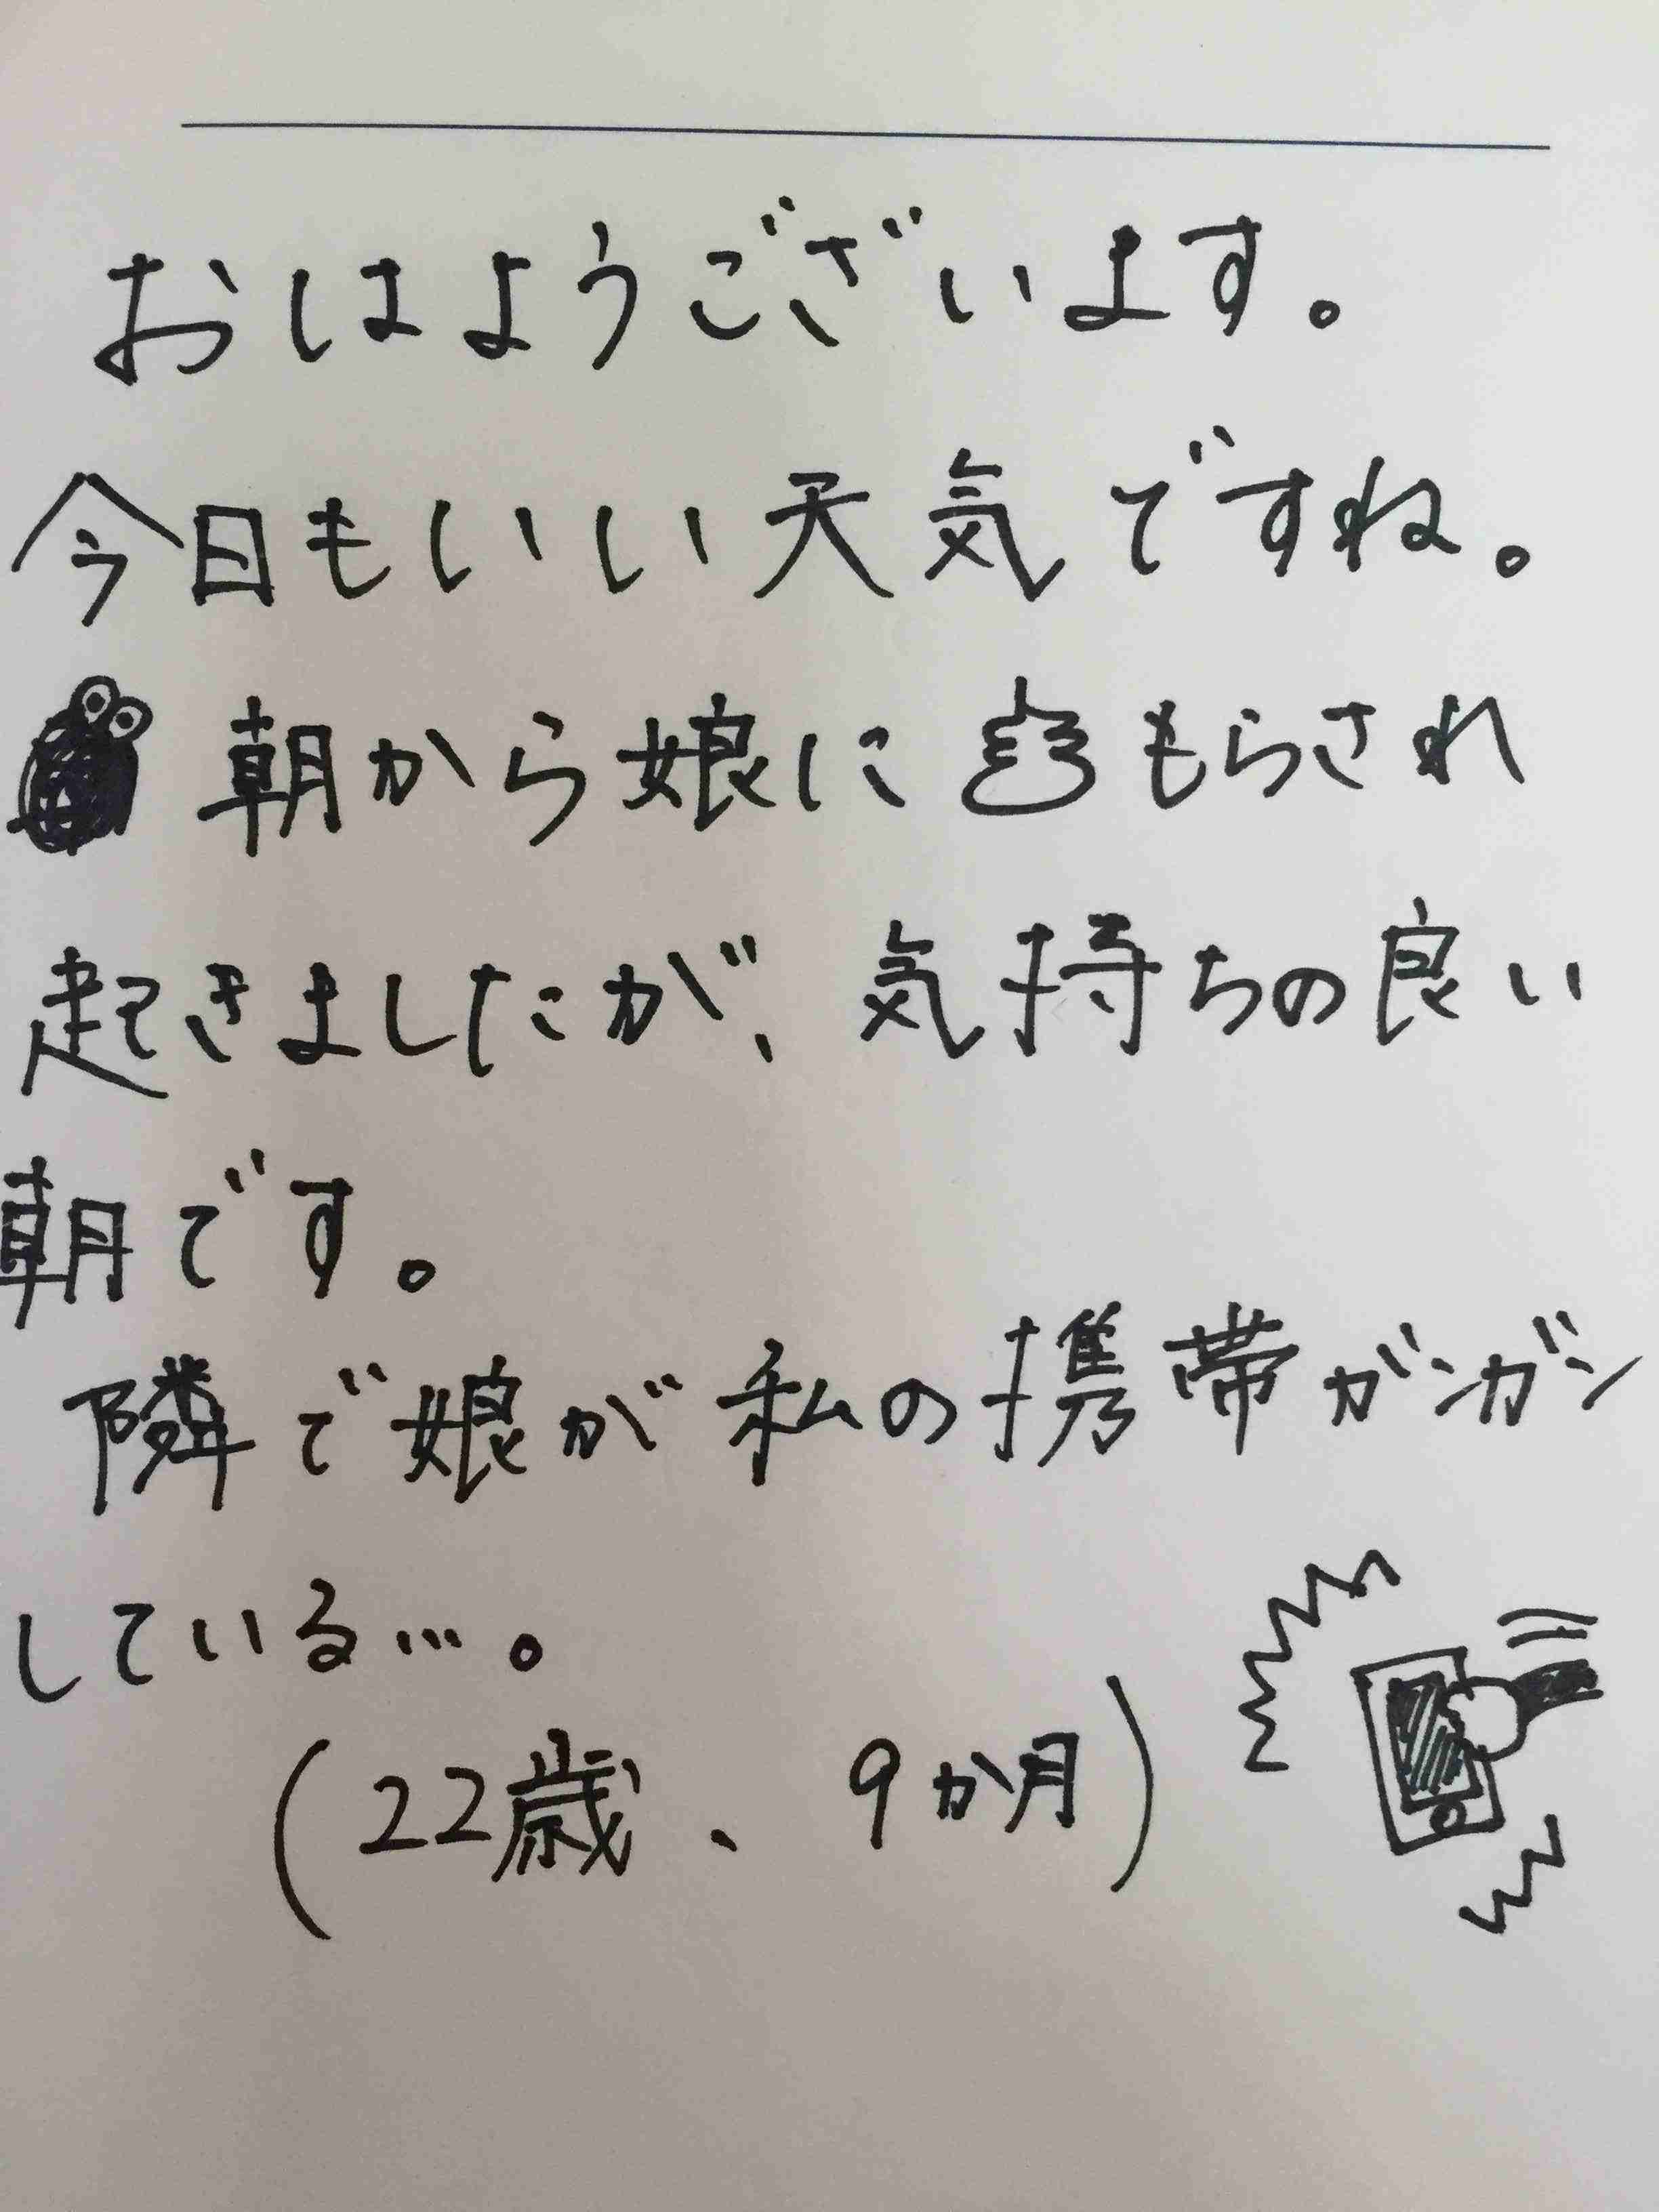 おはようございます。
今日もいい天気ですね。
朝から娘に もらされ
起きましたが、気持ちの良い
朝です。
隣で娘が私の携帯ガンガン
している…。
(22歳、9か月)